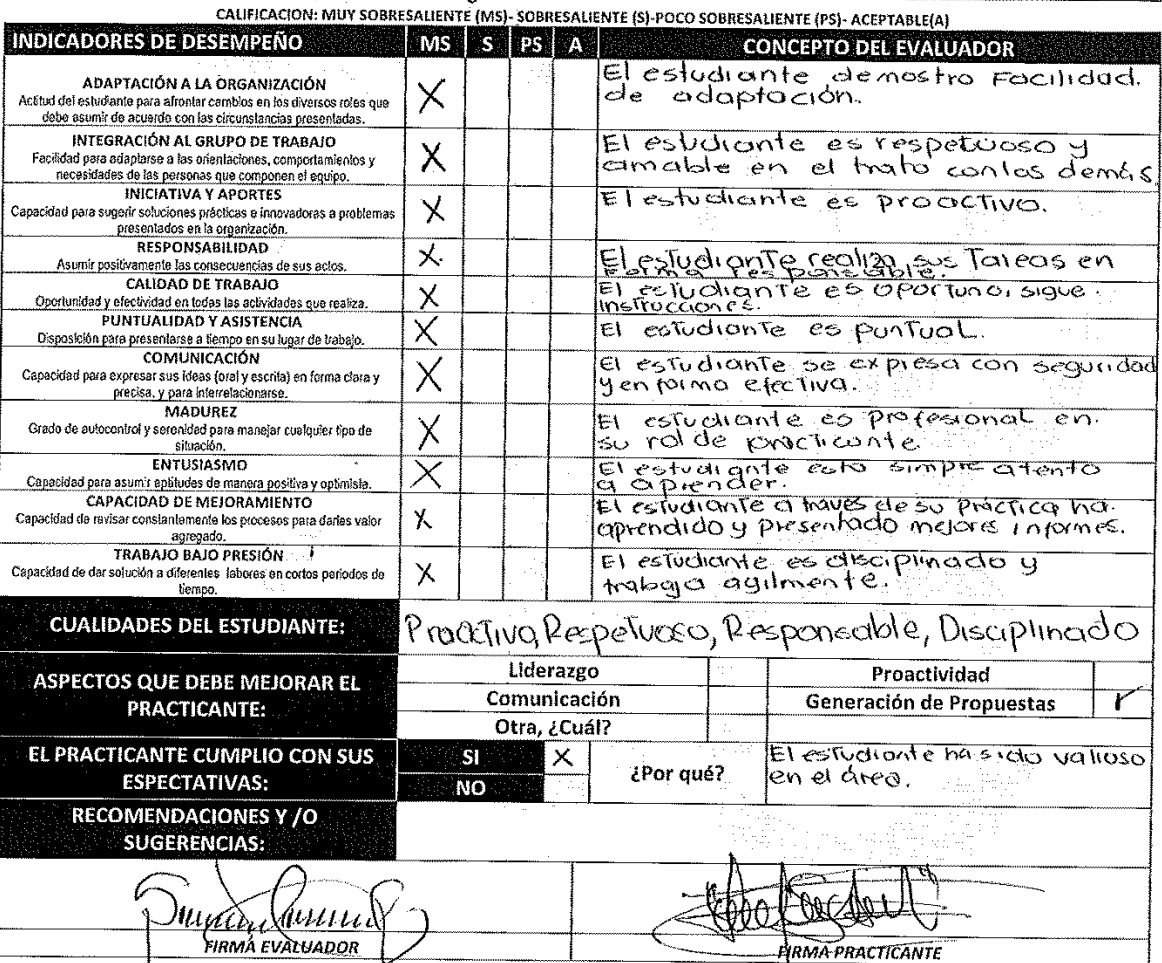 CALIFICACION: MUY SOBRESALIENTE (MS)- SOBRESALIENTE (S)-POCO SOBRESALIENTE (PS)- ACEPTABLE(A)
INDICADORES DE DESEMPEÑO MS S PS A CONCEPTO DEL EVALUADOR
ADAPTACIÓN A LA ORGANIZACIÓN
Actitud del estudiante para afrontar cambios en los diversos roles que
debe asumir de acuerdo con las circunstancias presentadas.
X
El estudiante demostro Facilidad.
de adaptación.
INTEGRACIÓN AL GRUPO DE TRABAJO
Facilidad para adaptarse a las orientaciones, comportamientos y
necesidades de las personas que componen el equipo.
X
El estudiante es respetuoso y
amable en el trato con los demás.
INICIATIVA Y APORTES
Capacidad para sugerir soluciones prácticas e innovadoras a problemas
presentados en la organización.
X
El estudiante es proactivo.
RESPONSABILIDAD
Asumir positivamente las consecuencias de sus actos.
X
El estudiante realiza sus Tareas en
forma responsable.
CALIDAD DE TRABAJO
Oportunidad y efectividad en todas las actividades que realiza.
X
El estudiante es oportuno, sigue
Instrucciones.
PUNTUALIDAD Y ASISTENCIA
Disposición para presentarse a tiempo en su lugar de trabajo.
X
El estudiante es puntual.
COMUNICACIÓN
Capacidad para expresar sus ideas (oral y escrita) en forma clara y
precisa, y para interrelacionarse.
X
El estudiante se expresa con seguridad
y en forma efectiva.
MADUREZ
Grado de autocontrol y serenidad para manejar cualquier tipo de
situación.
X
El estudiante es profesional en
su rol de practicante
ENTUSIASMO
Capacidad para asumir aptitudes de manera positiva y optimista.
X
El estudiante esta simpre atento
a aprender.
CAPACIDAD DE MEJORAMIENTO
Capacidad de revisar constantemente los procesos para darles valor
agregado.
X
El estudiante a través de su práctica ha
aprendido y presentado mejores informes.
TRABAJO BAJO PRESIÓN
Capacidad de dar solución a diferentes labores en cortos periodos de
tiempo.
X
El estudiante es disciplinado y
trabaja agilmente.
CUALIDADES DEL ESTUDIANTE: Proactivo, Respetuoso, Responsable, Disciplinado
ASPECTOS QUE DEBE MEJORAR EL
PRACTICANTE:
Liderazgo Proactividad
Comunicación Generación de Propuestas
Otra, ¿Cuál?
EL PRACTICANTE CUMPLIO CON SUS
ESPECTATIVAS:
SI X
NO
¿Por qué?
El estudiante ha sido valioso
en el área.
RECOMENDACIONES Y /O
SUGERENCIAS:
FIRMA EVALUADOR FIRMA PRACTICANTE